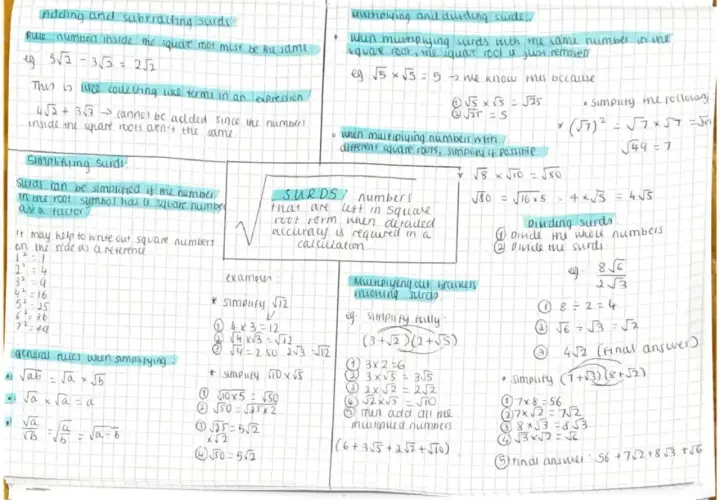 Adding and subtracting surds:
Rule: numbers inside the square root must be the same
eg 5√2 - 3√2 = 2√2
This is like collecting like terms in an expression
4√2 + 3√3 → cannot be added since the numbers
inside the square roots aren't the same
Simplifying surds:
Surds can be simplified if the number
in the root symbol has a square number
as a factor
It may help to write out square numbers
on the side as a reference
1² = 1
2² = 4
3² = 9
4² = 16
5² = 25
6² = 36
7² = 49
general rules when simplifying:
√ab = √a × √b
√a × √a = a
√a/√b = √a/b = √a÷b
examples:
* simplify √12
① 4 × 3 = 12
② √4 × √3 = √12
③ √4 = 2 so 2√3 = √12
* simplify √10 × √5
① √10×5 = √50
② √50 = √25×2
③ √25 = 5√2
×√2
④ √50 = 5√2
SURDS: numbers
that are left in square
root form when detailed
accuracy is required in a
calculation
Multiplying and dividing surds:
• When multiplying surds with the same number in the
square root, the square root is just removed
eg √5 × √5 = 5 → we know this because
① √5 × √5 = √25
② √25 = 5
• simplify the following
* (√7)² = √7 × √7 = √49
√49 = 7
• When multiplying numbers with
different square roots, simplify if possible
* √8 × √10 = √80
√80 = √16×5 = 4 × √5 = 4√5
Multiplying out brackets
involving surds
eg. simplify fully:
(3+√2)(2+√5)
① 3×2=6
② 3×√5 = 3√5
③ 2×√2 = 2√2
④ √2×√5 = √10
⑤ then add all the
multiplied numbers
(6+3√5+2√2+√10)
Dividing surds:
① Divide the whole numbers
② Divide the surds
eg. 8√6
2√3
① 8 ÷ 2 = 4
② √6 ÷ √3 = √2
③ 4√2 (final answer)
• simplify (7+√3)(8+√2)
① 7×8=56
② 7×√2 = 7√2
③ 8×√3 = 8√3
④ √3×√2 = √6
⑤ Final answer: 56+7√2+8√3+√6